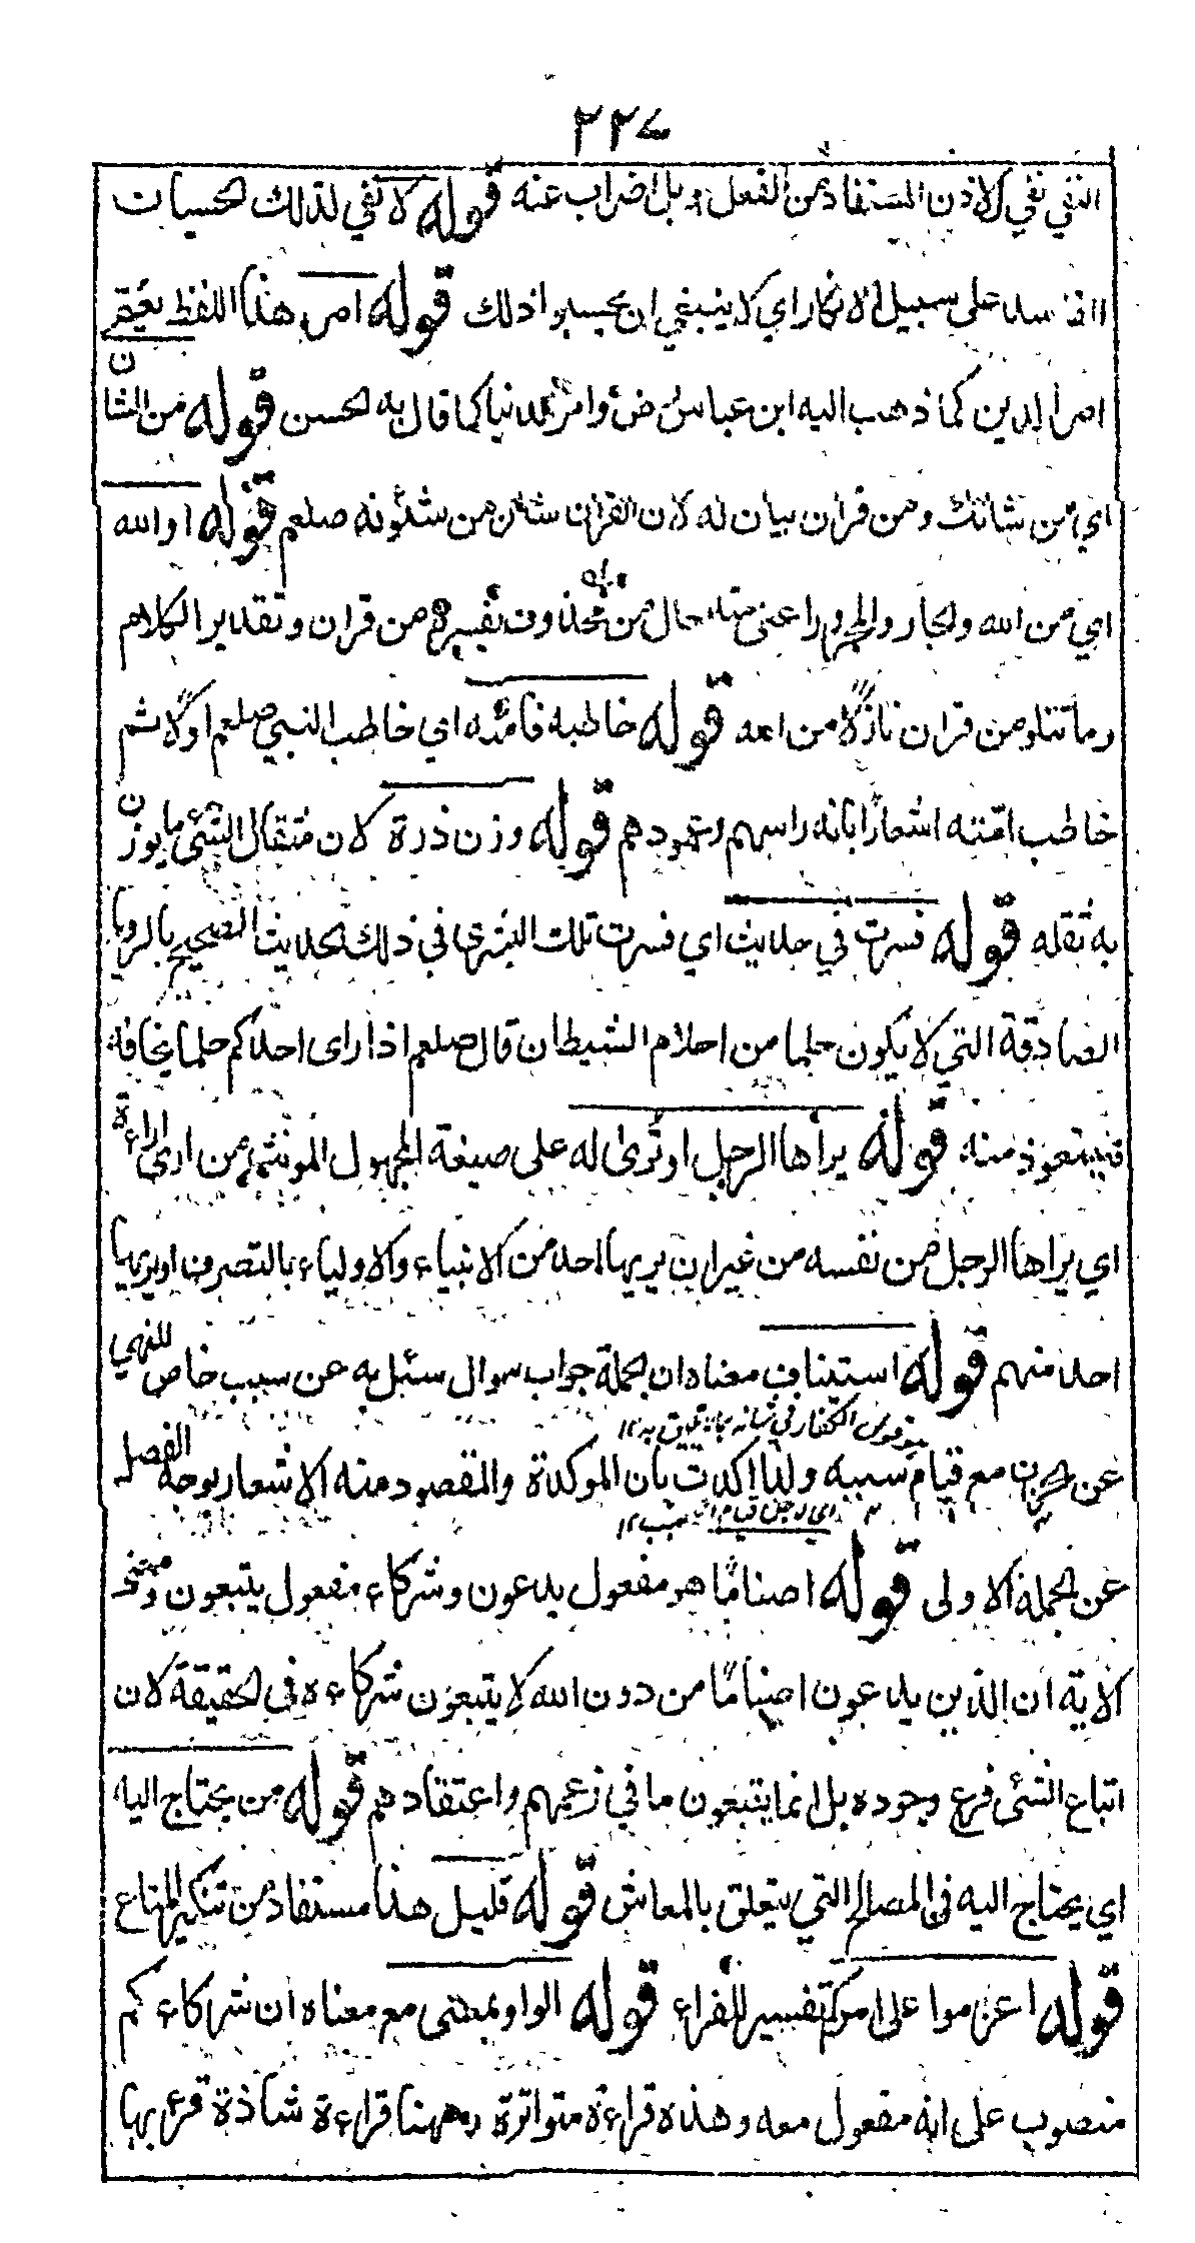 ٢٢٧
النفي نفي الاذن المستفاد من الفعل وبل اضراب عنه قوله لا نفي لذلك الحسبان
الفاسد على سبيل الانكار اي لا ينبغي ان يحسبوا ذلك قوله امر هذا اللفظ يعم
امر الدين كما ذهب اليه ابن عباس رض وامر الدنيا كما قال به الحسن قوله من الشان
اي من شانك ومن قران بيان له لان القران شان من شئونه صلعم قوله او الله
اي من الله والجار والمجرور اعني منه حال من محذوف تفسيره من قران وتقدير الكلام
وما تتلو من قران نازلًا من الله قوله خاطبه فامته اي خاطب النبي صلعم اولًا ثم
خاطب امته اشعارًا بانه راسهم وعمودهم قوله وزن ذرة لان مثقال الشئ ما يوزن
به ثقله قوله فسرت في حديث اي فسرت تلك البشرى في ذلك الحديث الصحيح بالرويا
الصادقة التي لا يكون حلما من احلام الشيطان قال صلعم اذا راى احدكم حلما يخافه
فليتعوذ منه قوله يراها الرجل او تُرى له على صيغة المجهول المونث من ارى اراءة
اي يراها الرجل من نفسه من غير ان يريها احد من الانبياء والاولياء بالتصرف او يريها
احد منهم قوله استيناف معناه ان الجملة جواب سوال سئل به عن سبب خاص للنهي
هو قول الكفار في شانه بما لا يليق به ١٢
عن الحزن مع قيام سببه ولذا اكدت بان الموكدة والمقصود منه الاشعار بوجه الفصل
اي وجه قيام السبب ١٢
عن الجملة الاولى قوله اصنامًا هو مفعول يدعون وشركاء مفعول يتبعون ومعنى
الاية ان الذين يدعون اصنامًا من دون الله لا يتبعون شركاءه في الحقيقة لان
اتباع الشئ فرع وجوده بل انما يتبعون ما في زعمهم واعتقادهم قوله من يحتاج اليه
اي يحتاج اليه في المصالح التي يتعلق بالمعاش قوله قليل هذا مستفاد من تنكير المتاع
قوله اعزموا على امركم تفسير للفراء قوله الواو بمعنى مع معناه ان شركاءكم
منصوب على انه مفعول معه وهذه قراءة متواترة وههنا قراءة شاذة قرء بها